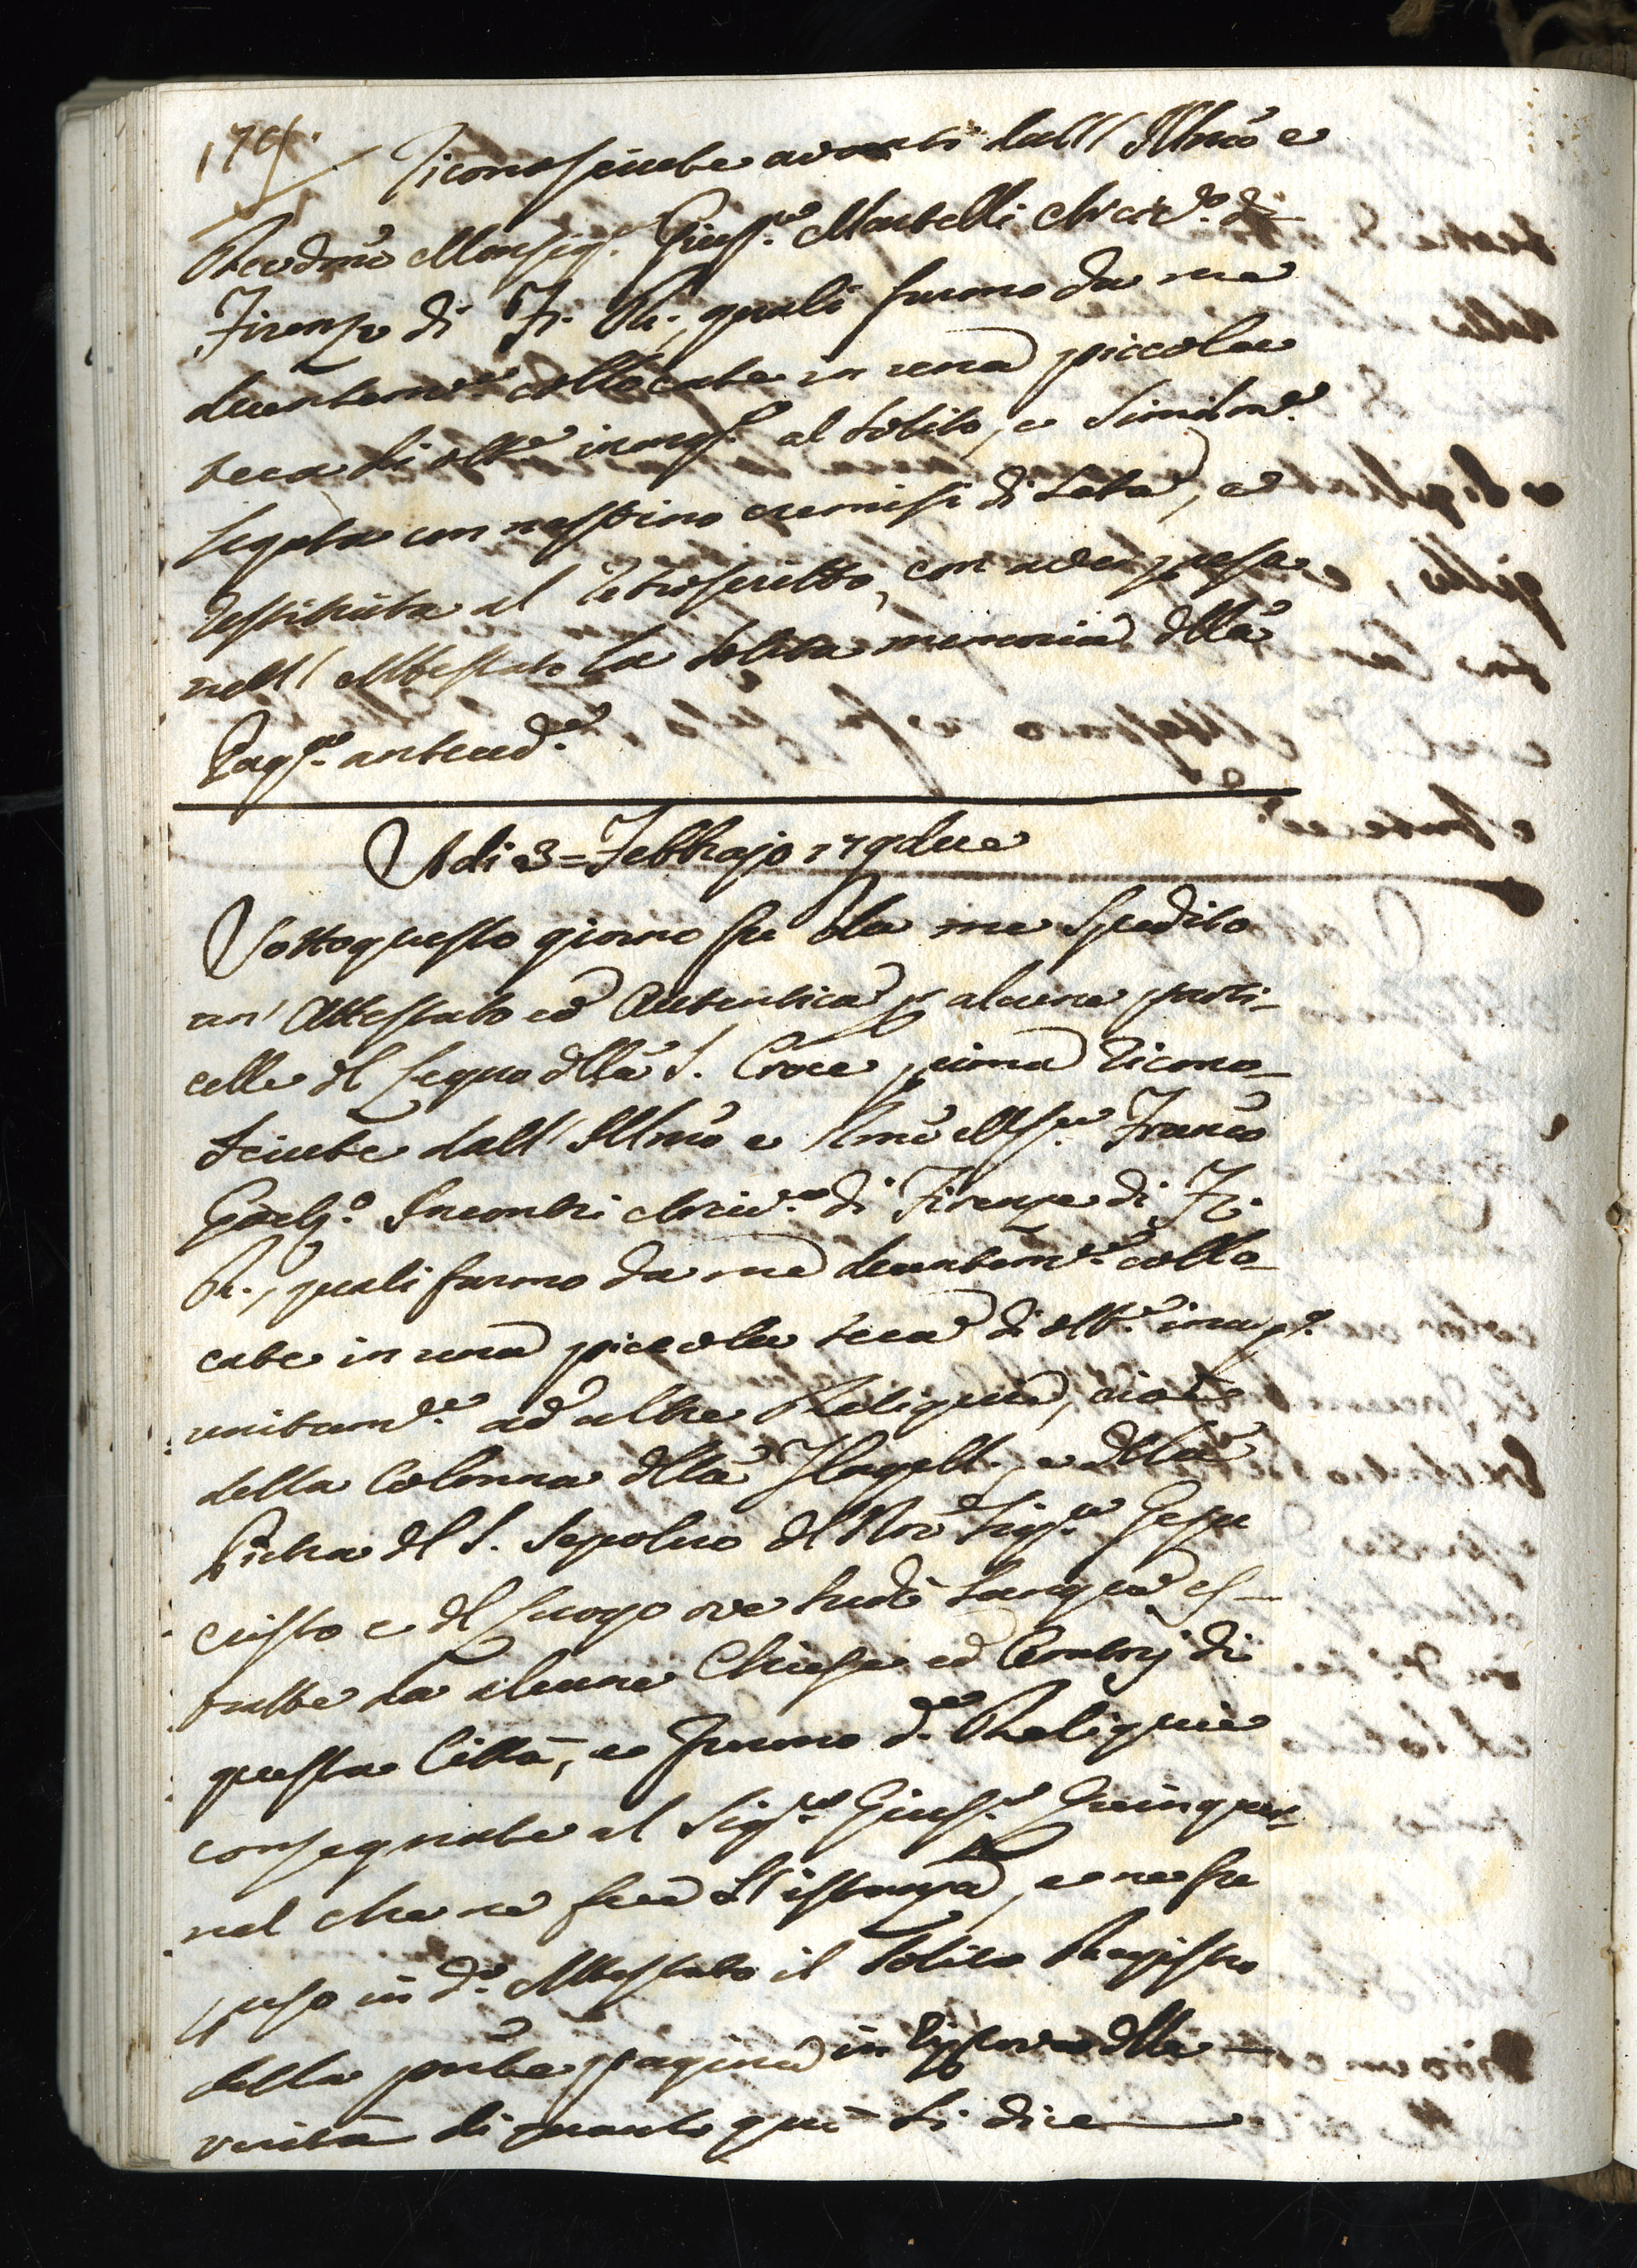 179.
riconosciute avanti dall' Illmo e
Revdmo Monsig.r Gius.e Martelli Arciv.o di
Firenze di F. R., quali furno da me
decentem.te collocate in una piccola
teca di ott.e inarg.ta al solito, e similm.te
legata con nastrino cremisi di seta, e
restituita al retroscritto, con aver presa
nell' Attestato la solita memoria dlla
Pag.na anteced.te
Adi 3 = Febbrajo 179due
Sotto questo giorno fu da me spedito
un' Attestato ed Autentica p alcune parti-
celle dl Legno dlla S. Croce prima ricono-
sciute dall' Illmo e Rmo Mgr.e Franco
Gaet.o Incontri Arciv.o di Firenze di F.
R., quali furno da me decentem.te collo-
cate in una piccola teca di ott.e inarg.ta
unitam.te ad altre Reliquie, cioè
della Colonna dlla Flagell.e, e dlla
Pietra dl S. Sepolcro dl Nro Sig.re Gesu
cristo e dl luogo ove sudò sangue es-
tratte da alcune Chiese ed Oratorj di
questa Città, e furno d.e Reliquie
consegnate al Sig.re Gius.e Quinque-
nel che ne fece l' istanza, e ne fu
preso in d.o Attestato il solito Registro
della pnte pagina in riprova dlla
verità di quanto quì si dice